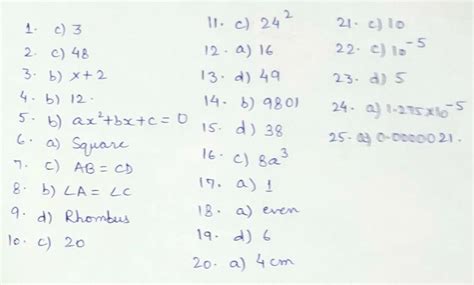 1. c) 3
2. c) 48
3. b) x + 2
4. b) 12.
5. b) ax²+bx+c = 0
6. a) Square
7. c) AB = CD
8. b) ∠A = ∠C
9. d) Rhombus
10. c) 20
11. c) 24²
12. a) 16
13. d) 49
14. b) 9801
15. d) 38
16. c) 8a³
17. a) 1
18. a) even
19. d) 6
20. a) 4 cm
21. c) 10
22. c) 10⁻⁵
23. d) 5
24. a) 1.275×10⁻⁵
25. a) 0.0000021.